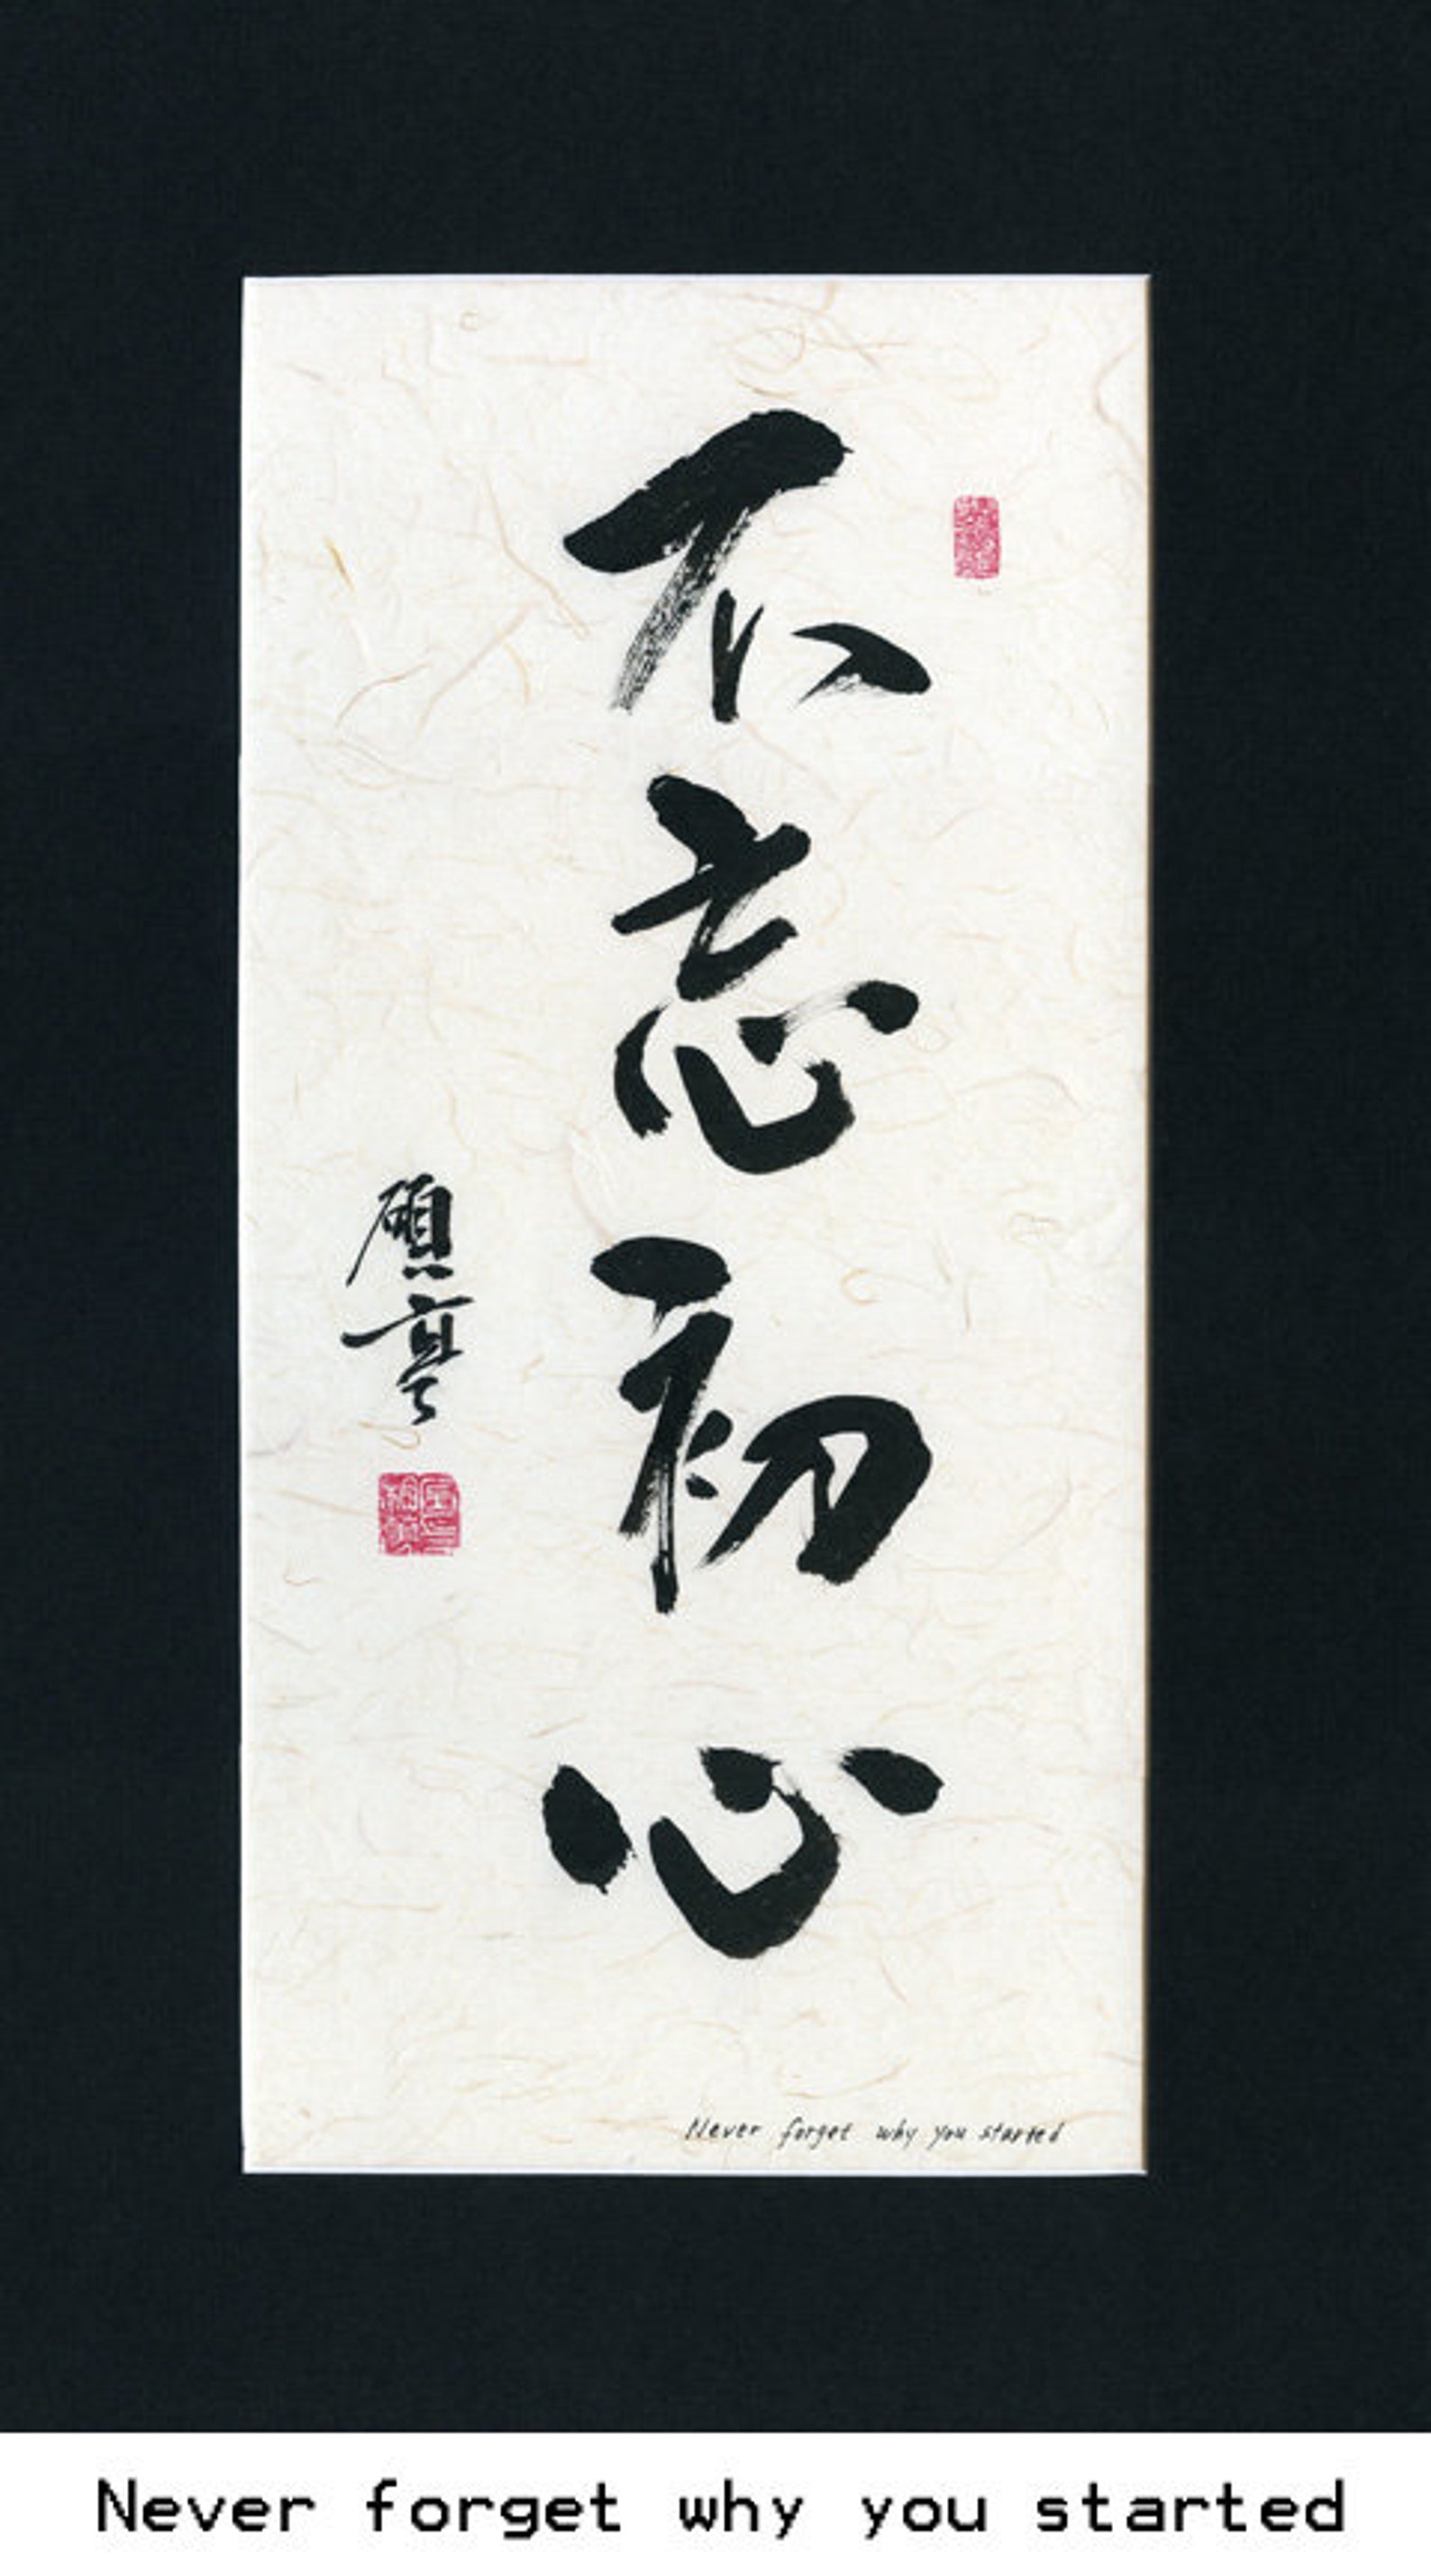 不忘初心
碩亭
Never forget why you started
Never forget why you started